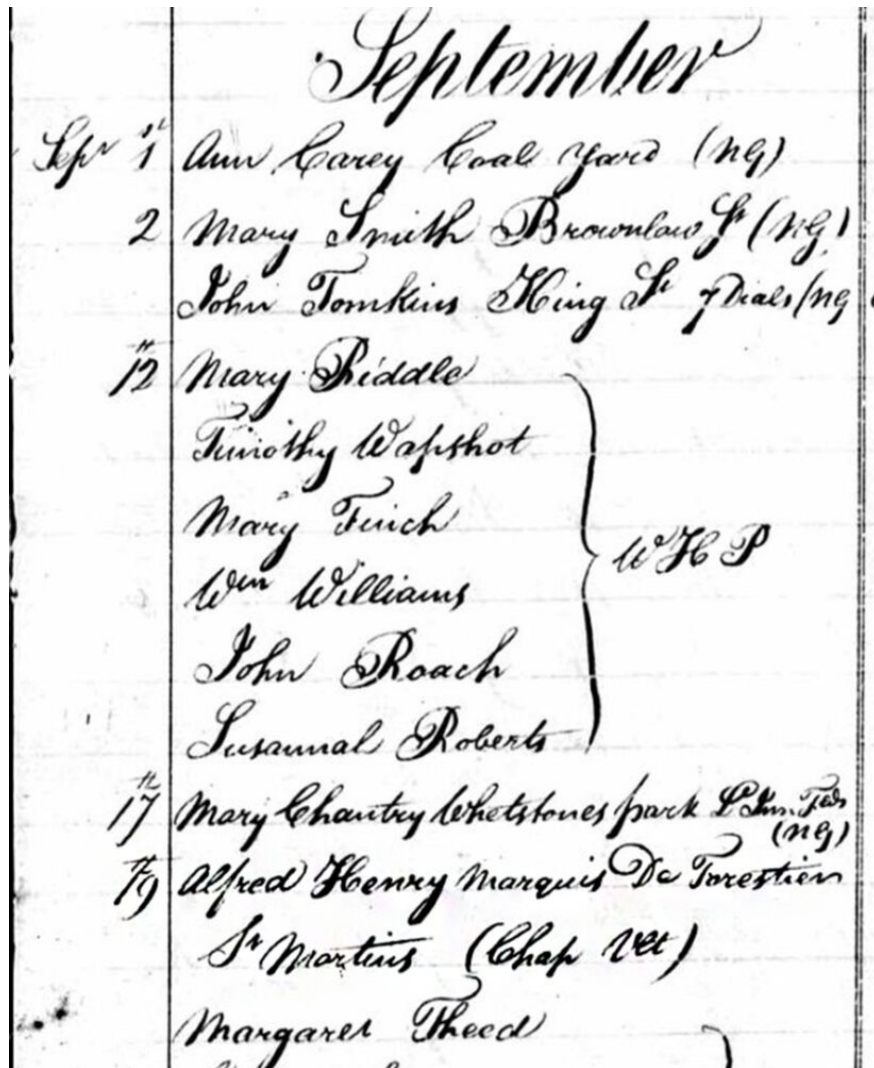 September
Sepr 1st Ann Carey Coal Yard (NG)
2 Mary Smith Brownlow St (NG)
John Tomkins King St 7 Dials (NG
12th Mary Riddle
Timothy Wapshot
Mary Finch
Wm Williams
John Roach
Susannal Roberts
W H P
17th Mary Chantry Whetstones park L Inn Fds
(NG)
19th Alfred Henry Marquis De
St Martins (Chap Vlt)
Margaret Theed